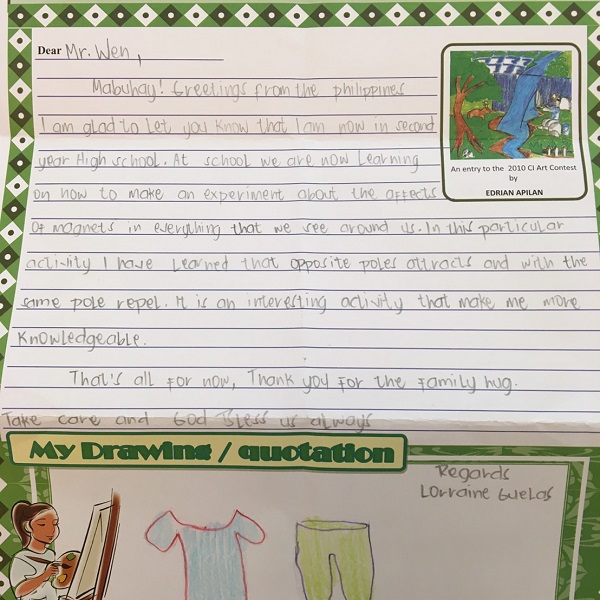 Dear Mr. Wen,
Mabuhay! Greetings from the philippines
I am glad to Let you know that I am now in second
year High school. At school we are now Learning
on how to make an experiment about the affects
Of magnets in everything that we see around us. In this particular
activity I have Learned that opposite poles attracts and with the
same pole repel. It is an interesting activity that make me more
Knowledgeable.
That's all For now, Thank you For the Family hug.
Take care and God Bless us always
An entry to the 2010 CI Art Contest
by
EDRIAN APILAN
My Drawing / quotation
Regards
Lorraine Guelas